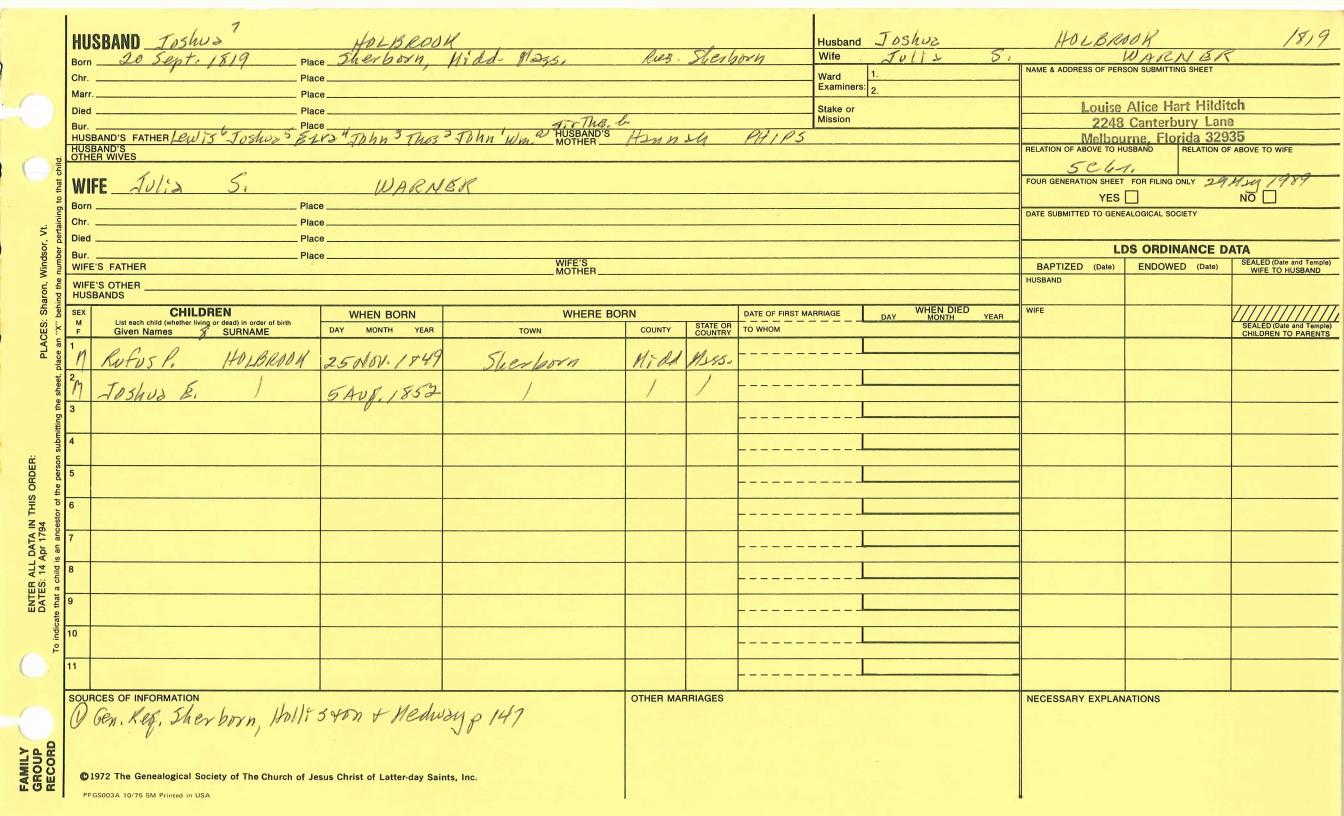 HUSBAND Joshua 7 HOLBROOK
Born 20 Sept. 1819 Place Sherborn, Midd. Mass. Res. Sherborn
Chr. Place
Marr. Place
Died Place
Bur. Place
HUSBAND'S FATHER Lewis 6 Joshua 5 Ezra 4 John 3 Thos 2 John 1 Wm. HUSBAND'S MOTHER Hannah PHIPS
HUSBAND'S OTHER WIVES
Husband Joshua HOLBROOK 1819
Wife Julia S. WARNER
Ward Examiners: 1.
2.
Stake or Mission
NAME & ADDRESS OF PERSON SUBMITTING SHEET
Louise Alice Hart Hilditch
2248 Canterbury Lane
Melbourne, Florida 32935
RELATION OF ABOVE TO HUSBAND RELATION OF ABOVE TO WIFE
FOUR GENERATION SHEET FOR FILING ONLY 29 May 1989
YES NO
DATE SUBMITTED TO GENEALOGICAL SOCIETY
WIFE Julia S. WARNER
Born Place
Chr. Place
Died Place
Bur. Place
WIFE'S FATHER WIFE'S MOTHER
WIFE'S OTHER HUSBANDS
LDS ORDINANCE DATA
BAPTIZED (Date) ENDOWED (Date) SEALED (Date and Temple) WIFE TO HUSBAND
HUSBAND
WIFE
SEALED (Date and Temple) CHILDREN TO PARENTS
SEX M F CHILDREN WHEN BORN WHERE BORN DATE OF FIRST MARRIAGE WHEN DIED
List each child (whether living or dead) in order of birth DAY MONTH YEAR
Given Names 8 SURNAME DAY MONTH YEAR TOWN COUNTY STATE OR COUNTRY TO WHOM
1 M Rufus P. HOLBROOK 25 Nov. 1849 Sherborn Midd Mass.
2 M Joshua E. / 5 Aug. 1852 / / /
3
4
5
6
7
8
9
10
11
SOURCES OF INFORMATION OTHER MARRIAGES NECESSARY EXPLANATIONS
① Gen. Reg. Sherborn, Holliston + Medway p 147
©1972 The Genealogical Society of The Church of Jesus Christ of Latter-day Saints, Inc.
PFGS003A 10/75 5M Printed in USA
FAMILY GROUP RECORD
ENTER ALL DATA IN THIS ORDER:
DATES: 14 Apr 1794 PLACES: Sharon, Windsor, Vt.
To indicate that a child is an ancestor of the person submitting the sheet, place an "X" behind the number pertaining to that child.